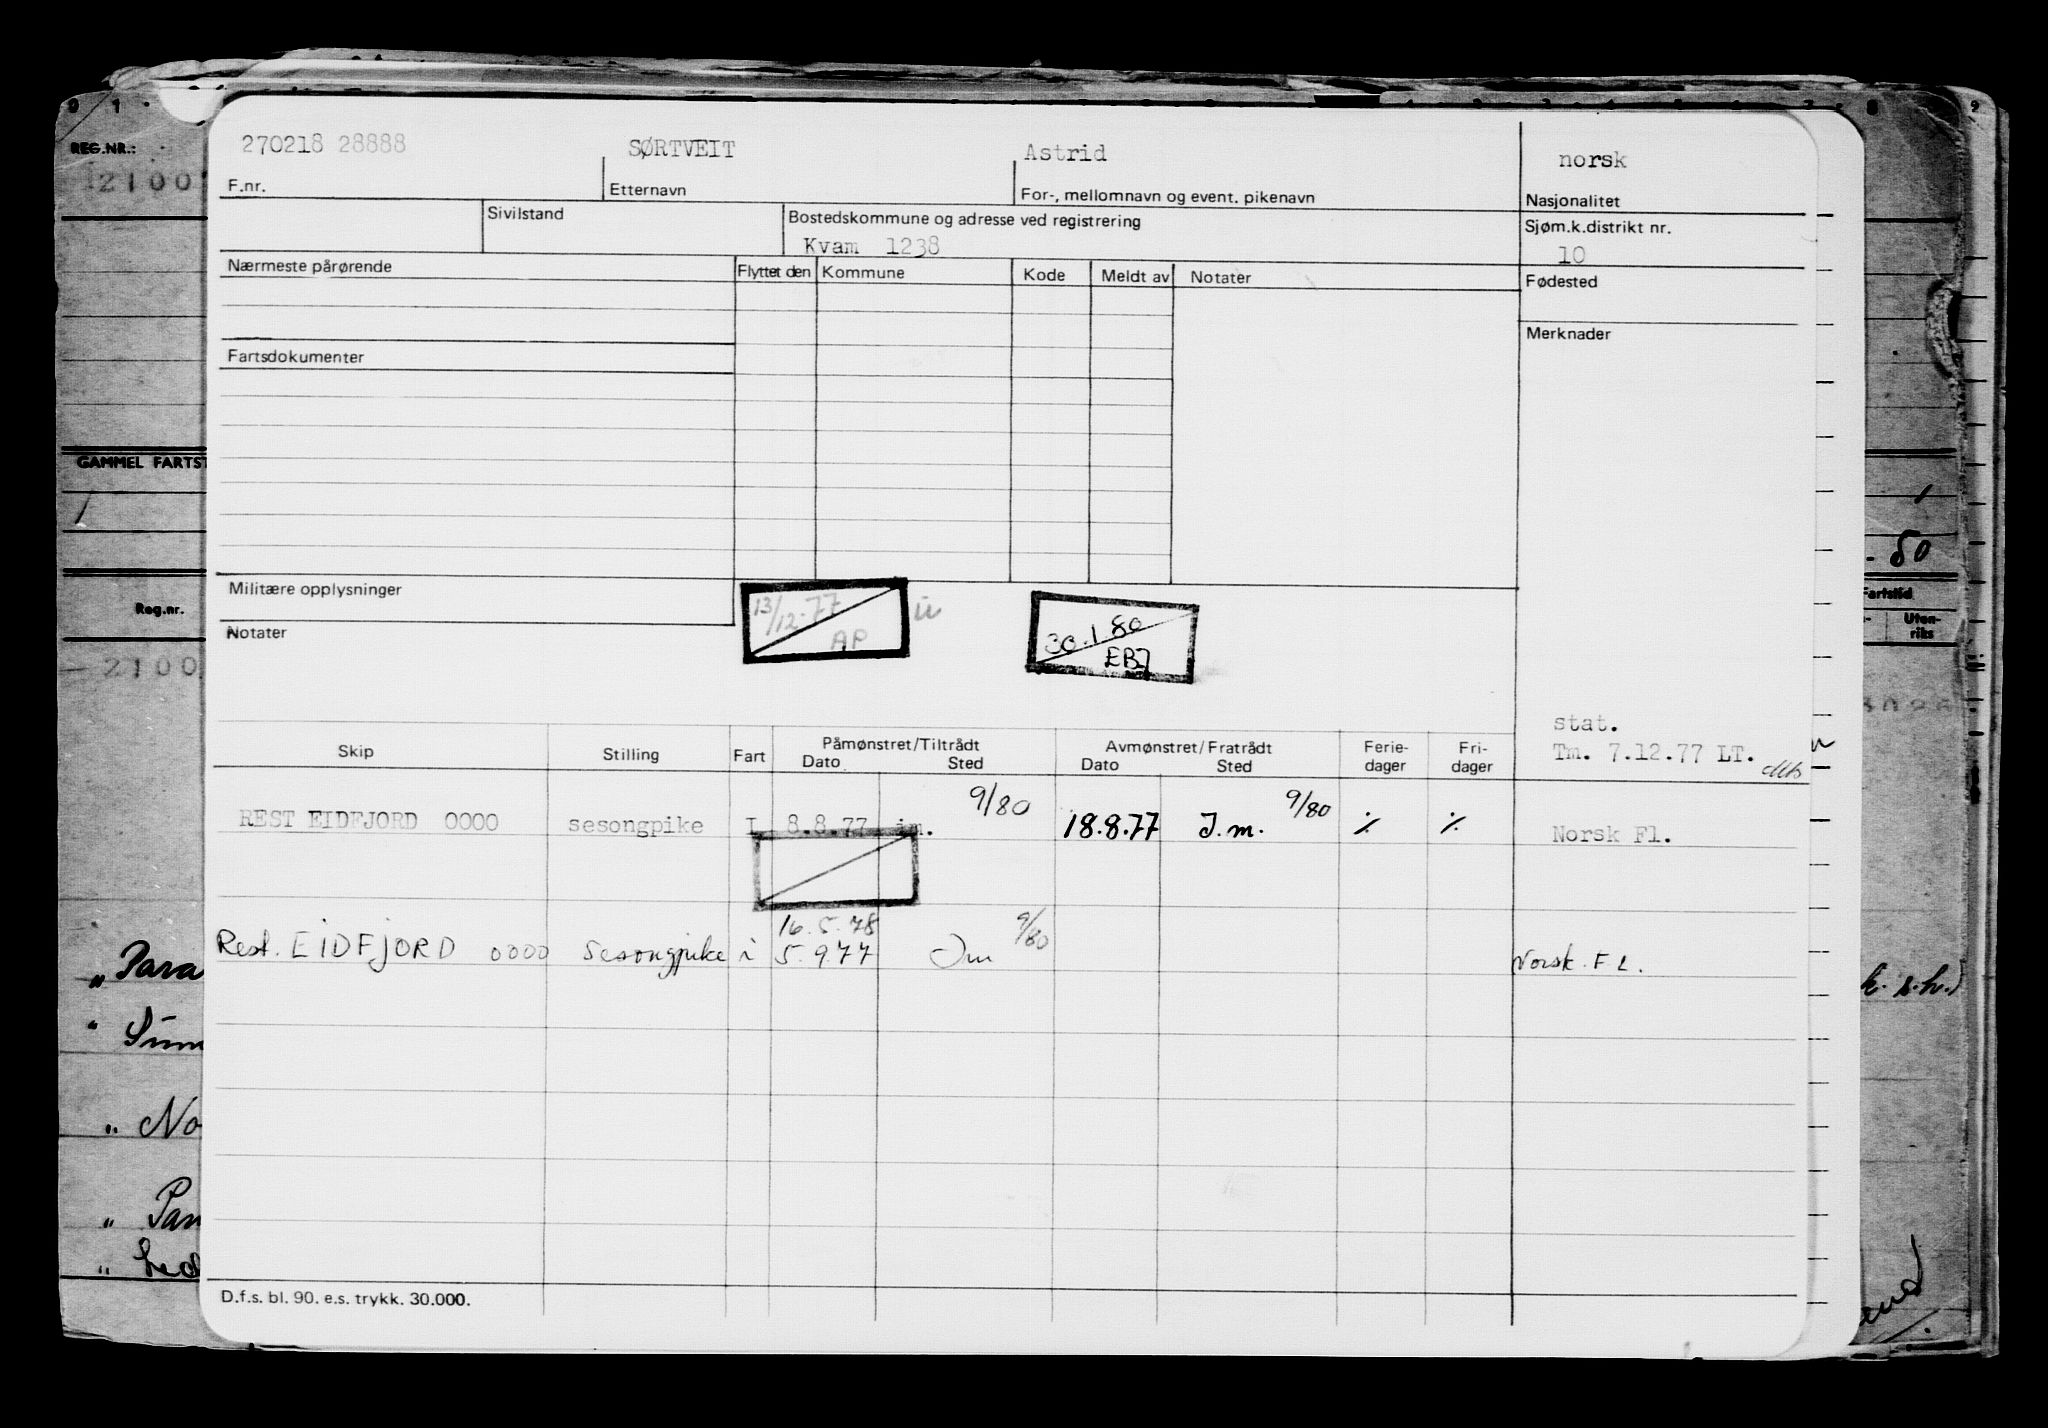 REG.NR.:
270218 28888 SØRTVEIT Astrid norsk
F.nr. Etternavn For-, mellomnavn og event. pikenavn Nasjonalitet
Sivilstand Bostedskommune og adresse ved registrering Sjøm.k.distrikt nr.
Kvam 1238 10
Nærmeste pårørende Flyttet den Kommune Kode Meldt av Notater Fødested
Merknader
Fartsdokumenter
GAMMEL FARTST
50
Militære opplysninger
Fartstid
Reg.nr.
Uten-
riks
13/12-77 AP
30.1.80 EBJ
Notater
2100
stat.
Tm. 7.12.77 LT.
Skip Stilling Fart Påmønstret/Tiltrådt Avmønstret/Fratrådt Ferie- Fri-
Dato Sted Dato Sted dager dager
9/80 9/80
REST EIDFJORD 0000 sesongpike I 8.8.77 im. 18.8.77 I.m. ⁒ ⁒ Norsk Fl.
16.5.78 9/80
Rest. EIDFJORD 0000 Sesongpike i 5.9.77 Im Norsk. FL.
" Para
k. s.h.)
" No
" Pan
" Led
D.f.s. bl. 90. e.s. trykk. 30.000.